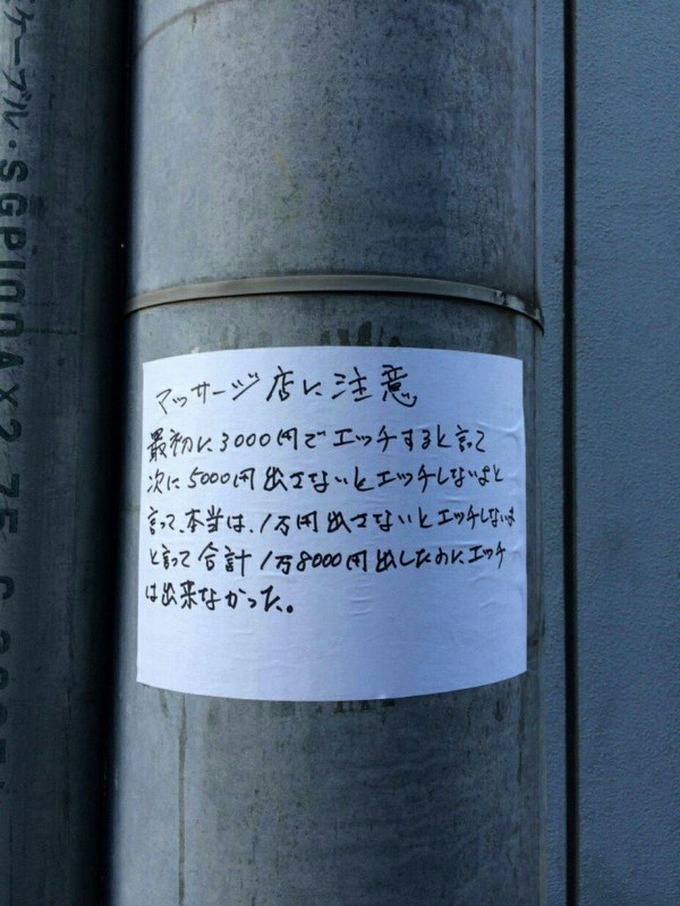 ケーブル・SGP100A×2.75
マッサージ店に注意
最初に3000円でエッチすると言って
次に5000円出さないとエッチしないよと
言って、本当は、1万円出さないとエッチしないよ
と言って合計1万8000円出したのにエッチ
は出来なかった。